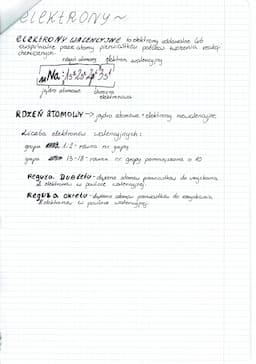 ELEKTRONY~
ELEKTRONY WALENCYJNE to elektrony oddawane lub
uwspólniane przez atomy pierwiastków podczas tworzenia wiązań
chemicznych.
rdzeń atomowy elektron walencyjny
₁₁Na: 1s²2s²2p⁶3s¹
jądro atomowe
elektronowa
RDZEŃ ATOMOWY → jądro atomowe + elektrony niewalencyjne
Liczba elektronów walencyjnych:
grupa 1-2 - równa nr grupy
grupa 13-18 - równa nr grupy pomniejszona o 10
Reguła Dubletu - dążenie atomów pierwiastków do uzyskania
2 elektronów w powłoce walencyjnej.
Reguła oktetu - dążenie atomów pierwiastków do uzyskania
8 elektronów w powłoce walencyjnej.